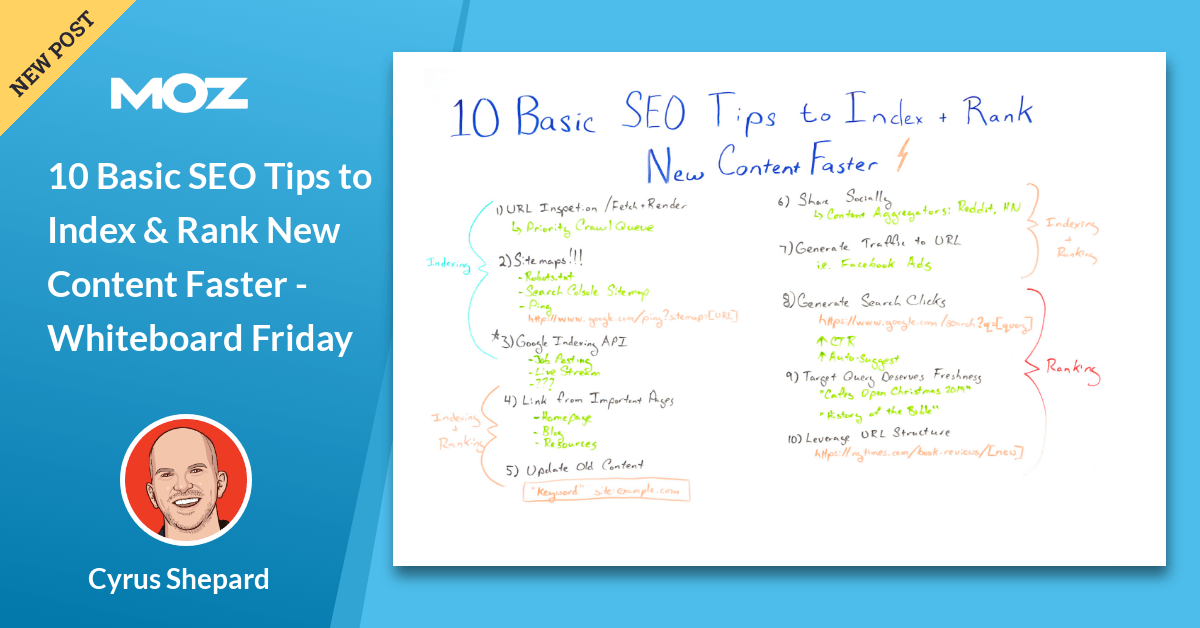 NEW POST
MOZ
10 Basic SEO Tips to
Index & Rank New
Content Faster -
Whiteboard Friday
Cyrus Shepard
10 Basic SEO Tips to Index + Rank
New Content Faster
1) URL Inspetion / Fetch + Render
↳ Priority Crawl Queue
Indexing
2) Sitemaps!!!
- Robots.txt
- Search Colsole Sitemap
- Ping
http://www.google.com/ping?sitemap=[URL]
*3) Google Indexing API
- Job Posting
- Live Stream
- ???
4) Link from Important Pages
- Homepage
- Blog
- Resources
Indexing
+
Ranking
5) Update Old Content
"Keyword" site:example.com
6) Share Socially
↳ Content Aggregators: Reddit, HN
7) Generate Traffic to URL
ie. Facebook Ads
Indexing
+
Ranking
8) Generate Search Clicks
https://www.google.com/search?q=[query]
↑ CTR
↑ Auto-Suggest
9) Target Query Deserves Freshness
Open Christmas 2019"
"History of the Bible"
10) Leverage URL Structure
https://nytimes.com/book-reviews/[new]
Ranking